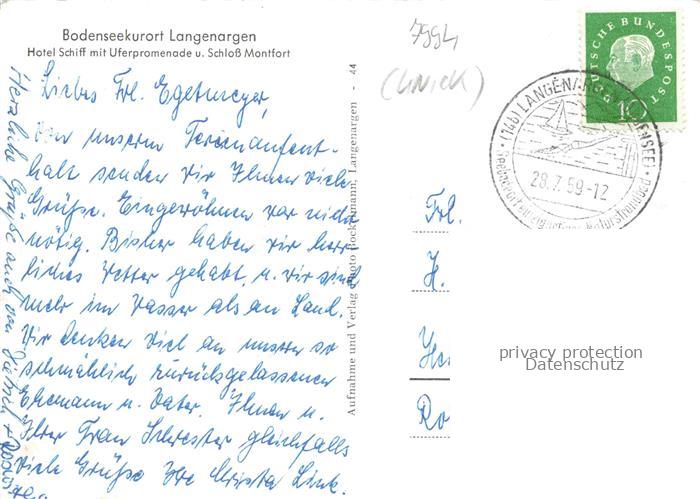 Bodenseekurort Langenargen
Hotel Schiff mit Uferpromenade u. Schloß Montfort
Liebes Frl. Egetmeyer,
von unserem Ferienaufent-
halt senden wir Ihnen viele
Grüße. Eingewöhnen war nicht
nötig. Bisher haben wir herr-
liches Wetter gehabt, u. wir sind
mehr im Wasser als an Land.
Wir denken viel an unseren so
schmählich zurückgelassenen
Ehemann u. Vater. Ihnen u.
Ihrer Frau Schwester gleichfalls
viele Grüße Ihre Christa Link.
Herzliche Grüße auch von
Aufnahme und Verlag Photo Bockelmann, Langenargen - 44
7994
DEUTSCHE BUNDESPOST
10
(14b) LANGENARGEN (BODENSEE)
28.7.59-12
Frl.
H.
He.
Ro
privacy protection
Datenschutz